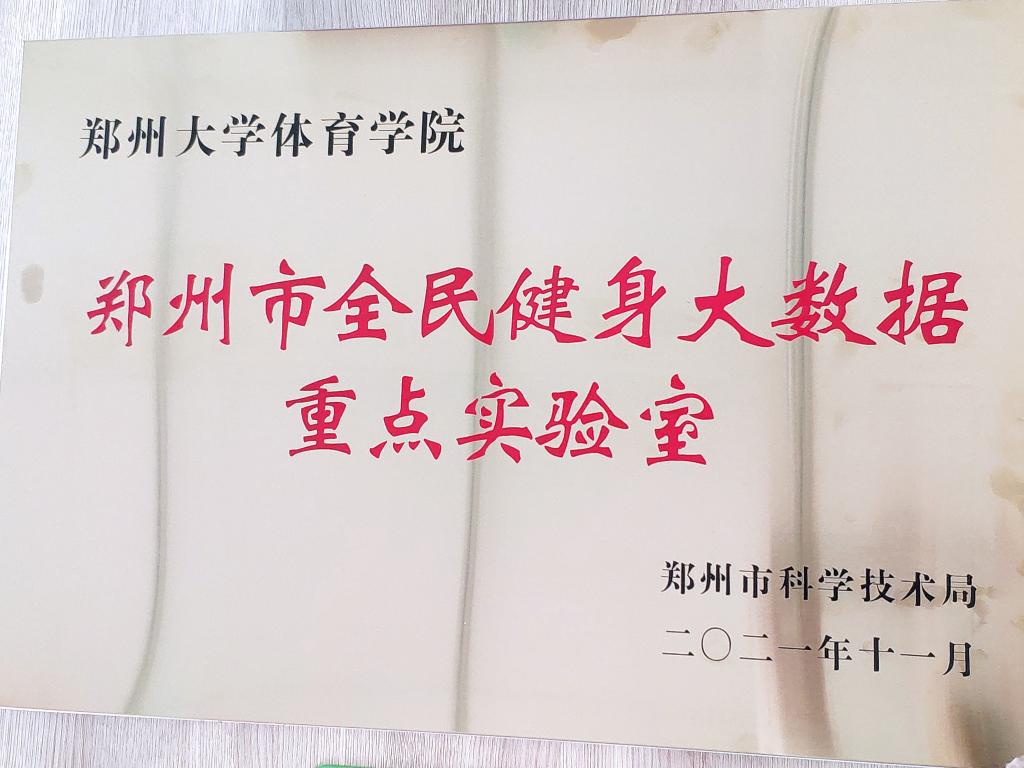 郑州大学体育学院
郑州市全民健身大数据
重点实验室
郑州市科学技术局
二〇二一年十一月